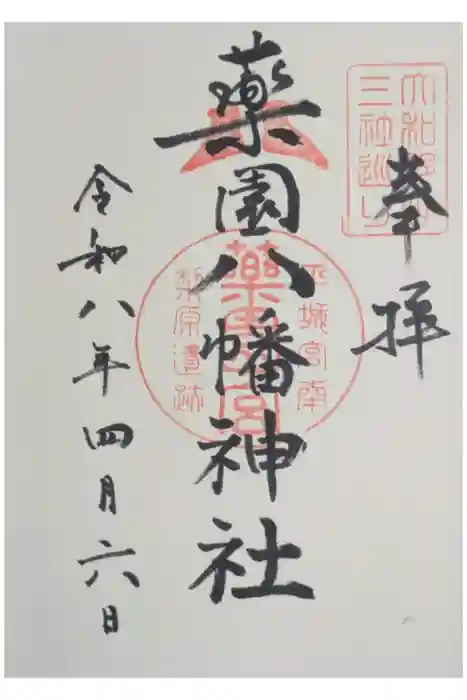 奉拝
大和郡山
三社巡り
薬園八幡神社
平城宮南
梨原遺跡
令和八年四月六日